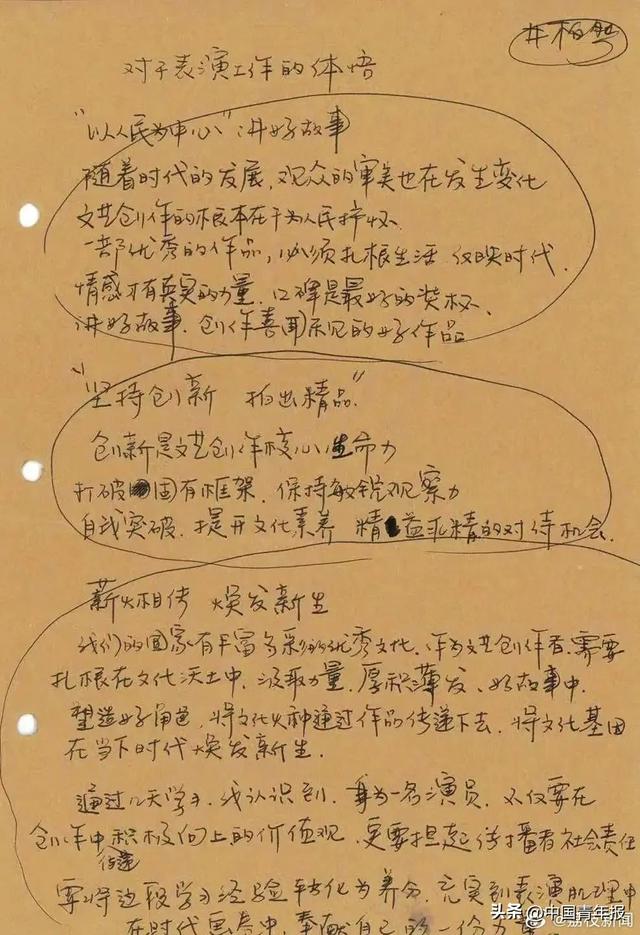 井柏然
对于表演工作的体悟
“以人民为中心”讲好故事
随着时代的发展,观众的审美也在发生变化
文艺创作的根本在于为人民抒怀.
一部优秀的作品,必须扎根生活 反映时代.
情感才有真实的力量.口碑是最好的奖杯.
讲好故事.创作喜闻乐见的好作品
“坚持创新 拍出精品”
创新是文艺创作核心生命力
打破固有框架.保持敏锐观察力
自我突破.提升文化素养 精益求精的对待机会.
薪火相传 焕发新生
我们的国家有丰富多彩的优秀文化.作为文艺创作者.需要
扎根在文化沃土中.汲取力量.厚积薄发、好故事中.
塑造好角色,将文化火种通过作品传递下去.将文化基因
在当下时代焕发新生.
通过几天学习.我认识到.身为一名演员.不仅要在
创作中传递积极向上的价值观.更要担起传播者社会责任
要将这段学习经验转化为养分.充实到表演肌理中
在时代 中.奉献自己的一份力
头条 @中国青年报
@荔枝新闻